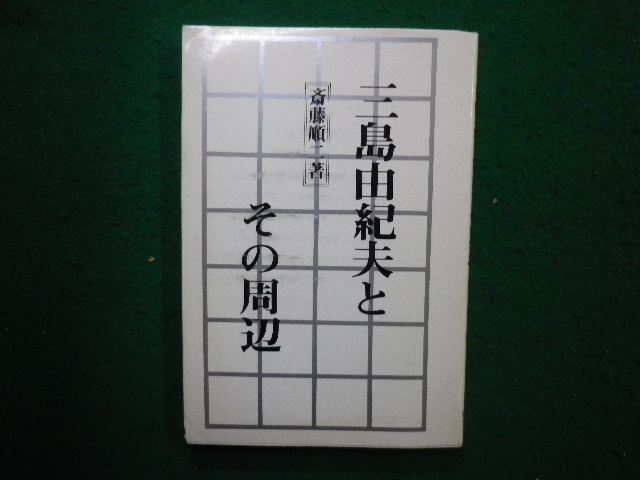 三島由紀夫と
その周辺
斎藤順二著